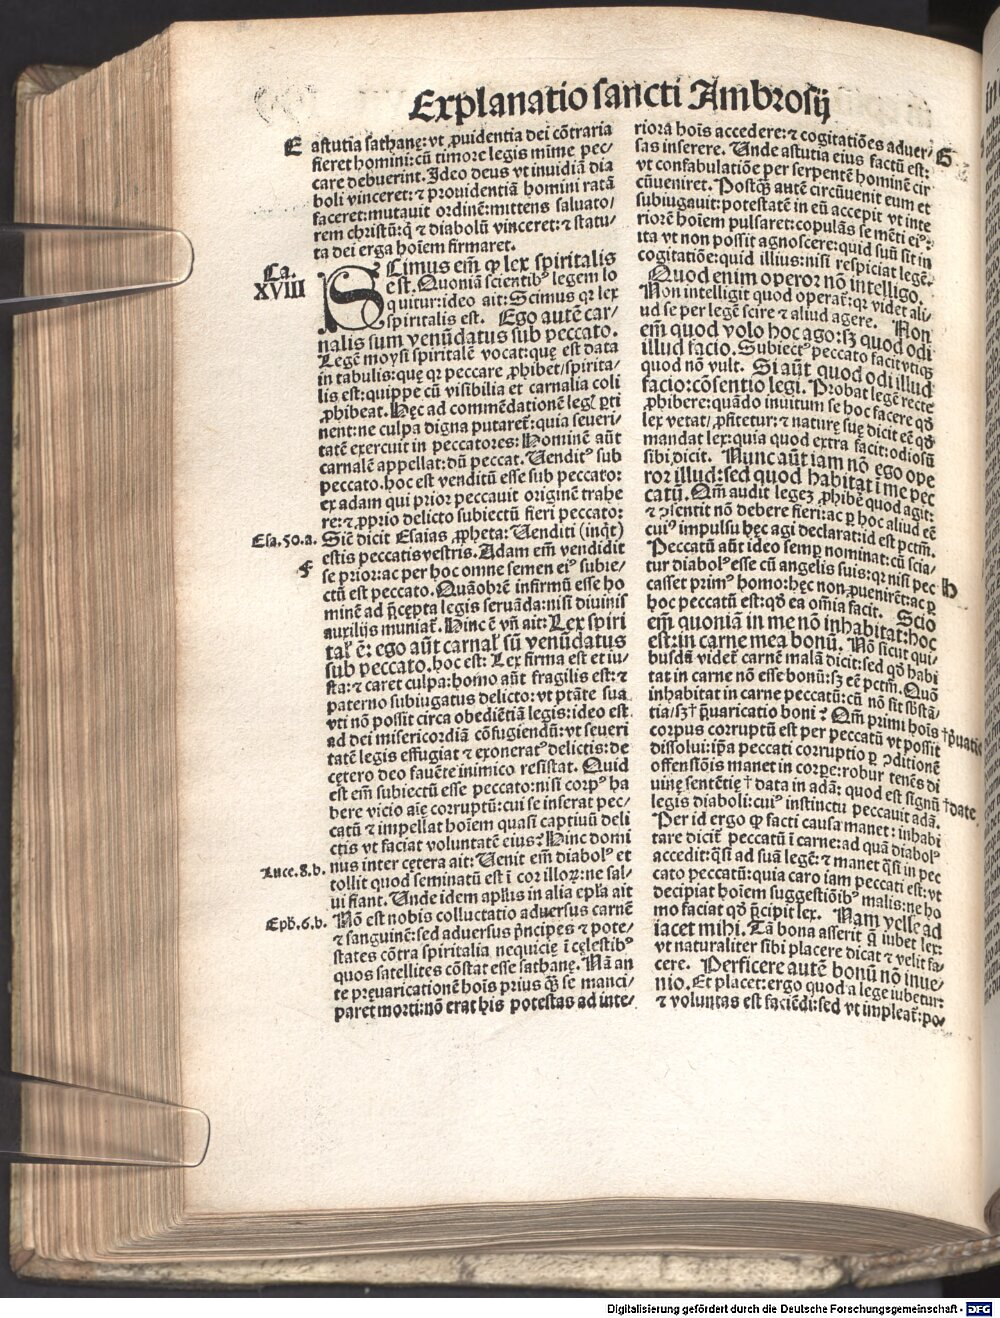 Explanatio sancti Ambrosij
E
astutia sathanę: vt ꝓuidentia dei cõtraria
fieret homini: cũ timore legis mĩme pec/
care debuerint. Ideo deus vt inuidiã dia
boli vinceret: ⁊ prouidentiã homini ratã
faceret: mutauit ordinẽ: mittens saluato/
rem christũ: q̃ ⁊ diabolũ vinceret: ⁊ statu/
ta dei erga hoĩem firmaret.
Ca.
XVIII
SCimus em̃ ꝙ lex spiritalis
est. Quoniã scientibꝰ legem lo
quitur: ideo ait: Scimus qꝛ lex
spiritalis est. Ego autẽ car/
nalis sum venũdatus sub peccato.
Legẽ moysi spiritalẽ vocat: quę est data
in tabulis: quę qꝛ peccare ꝓhibet/ spirita/
lis est: quippe cũ visibilia et carnalia coli
ꝓhibeat. Hęc ad commẽdationẽ legꝭ ꝑti
nent: ne culpa digna putaret̃: quia seueri/
tatẽ exercuit in peccatores: Hominẽ aũt
carnalẽ appellat: dũ peccat. Venditꝰ sub
peccato. hoc est venditũ esse sub peccato:
ex adam qui prior peccauit originẽ trahe
re: ⁊ ꝓprio delicto subiectũ fieri peccato:
Esa. 50. a.
Sic̃ dicit Esaias ꝓpheta: Venditi (inq̃t)
estis peccatis vestris. Adam em̃ vendidit
F
se prior: ac per hoc omne semen eiꝰ subie/
ctũ est peccato. Quãobrẽ infirmũ esse ho
minẽ ad p̃cepta legis seruãda: nisi diuinis
auxilijs muniat̃. Hinc ẽ vñ ait: Lex spiri
tal̃ ẽ: ego aũt carnal̃ sũ venũdatus
sub peccato. hoc est: Lex firma est et iu/
sta: ⁊ caret culpa: homo aũt fragilis est: ⁊
paterno subiugatus delicto: vt ptãte sua
vti nõ possit circa obediẽtiã legis: ideo est
ad dei misericordiã cõfugiendũ: vt seueri
tatẽ legis effugiat ⁊ exoneratꝰ delictis: de
cętero deo fauẽte inimico resistat. Quid
est em̃ subiectũ esse peccato: nisi corpꝰ ha
bere vicio aĩę corruptũ: cui se inserat pec/
catũ ⁊ impellat hoĩem quasi captiuũ deli
ctis vt faciat voluntatẽ eius? Hinc domi
Luce. 8. b.
nus inter cętera ait: Uenit em̃ diabolꝰ et
tollit quod seminatũ est ĩ cor illoꝝ: ne sal/
ui fiant. Unde idem apl̃us in alia epl̃a ait
Eph. 6. b.
Nõ est nobis colluctatio aduersus carnẽ
⁊ sanguinẽ: sed aduersus p̃ncipes ⁊ pote/
states cõtra spiritalia nequicię ĩ cęlestibꝰ
quos satellites cõstat esse sathanę. Nã an
te pręuaricationẽ hois prius q̃ȝ se manci/
paret morti: nõ erat his potestas ad inte/
riora hois accedere: ⁊ cogitatiões aduer/
G
sas inserere. Unde astutia eius factũ est:
vt confabulatiõe per serpentẽ hominẽ cir
cũueniret. Postq̃ȝ autẽ circũuenit eum et
subiugauit: potestatẽ in eũ accepit vt inte
riorẽ hoĩem pulsaret: copulãs se mẽti eiꝰ:
ita vt non possit agnoscere: quid suũ sit in
cogitatiõe: quid illius: nisi respiciat legẽ.
Quod enim operor nõ intelligo.
Non intelligit quod operat̃: qꝛ videt ali/
ud se per legẽ scire ⁊ aliud agere. Non
em̃ quod volo hoc ago: sȝ quod odi
illud facio. Subiectꝰ peccato facit vtiqȝ
quod nõ vult. Si aũt quod odi illud
facio: cõsentio legi. Probat legẽ recte
ꝓhibere: quãdo inuitum se hoc facere qđ
lex vetat/ ꝓfitetur: ⁊ naturę suę dicit eẽ qđ
mandat lex: quia quod extra facit: odiosũ
sibi dicit. Nunc aũt iam nõ ego ope
ror illud: sed quod habitat ĩ me pec
catũ. Qm̃ audit legeȝ ꝓhibẽ quod agit:
⁊ ꝯsentit nõ debere fieri: ac ꝑ hoc aliud eẽ
cuiꝰ impulsu hęc agi declarat: id est pctm̃.
Peccatũ aũt ideo semꝑ nominat: cũ scia/
tur diabolꝰ esse cũ angelis suis: qꝛ nisi pec
H
casset primꝰ homo: hęc non ꝓuenirẽt: ac ꝑ
hoc peccatũ est: qđ ea om̃ia facit. Scio
em̃ quoniã in me nõ inhabitat: hoc
est: in carne mea bonũ. Nõ sicut qui/
busdã videt̃ carnẽ malã dicit: sed qđ habi
tat in carne nõ esse bonũ: sȝ eẽ pctm̃. Quõ
inhabitat in carne peccatũ: cũ nõ sit sb̃stã/
tia/ sȝ † p̃uaricatio boni? Qm̃ primi hois
† p̃uatio
corpus corruptũ est per peccatũ vt possit
dissolui: ip̃a peccati corruptio ꝑ ꝯditionẽ
offensiõis manet in corꝑe: robur tenẽs di
uinę sentẽtię † data in adã: quod est signũ
† date
legis diaboli: cuiꝰ instinctu peccauit adã.
Per id ergo ꝙ facti causa manet: inhabi
tare dicit̃ peccatũ ĩ carne: ad quã diabolꝰ
accedit: q̃si ad suã legẽ: ⁊ manet q̃si in pec
cato peccatũ: quia caro iam peccati est: vt
decipiat hoĩem suggestiõibꝰ malis: ne ho
mo faciat qđ p̃cipit lex. Nam velle ad
iacet mihi. Tã bona asserit q̃ iubet lex:
vt naturaliter sibi placere dicat ⁊ velit fa/
cere. Perficere autẽ bonũ nõ inue/
nio. Et placet: ergo quod a lege iubetur:
⁊ voluntas est faciẽdi: sed vt impleat̃: po/
Digitalisierung gefördert durch die Deutsche Forschungsgemeinschaft - DFG